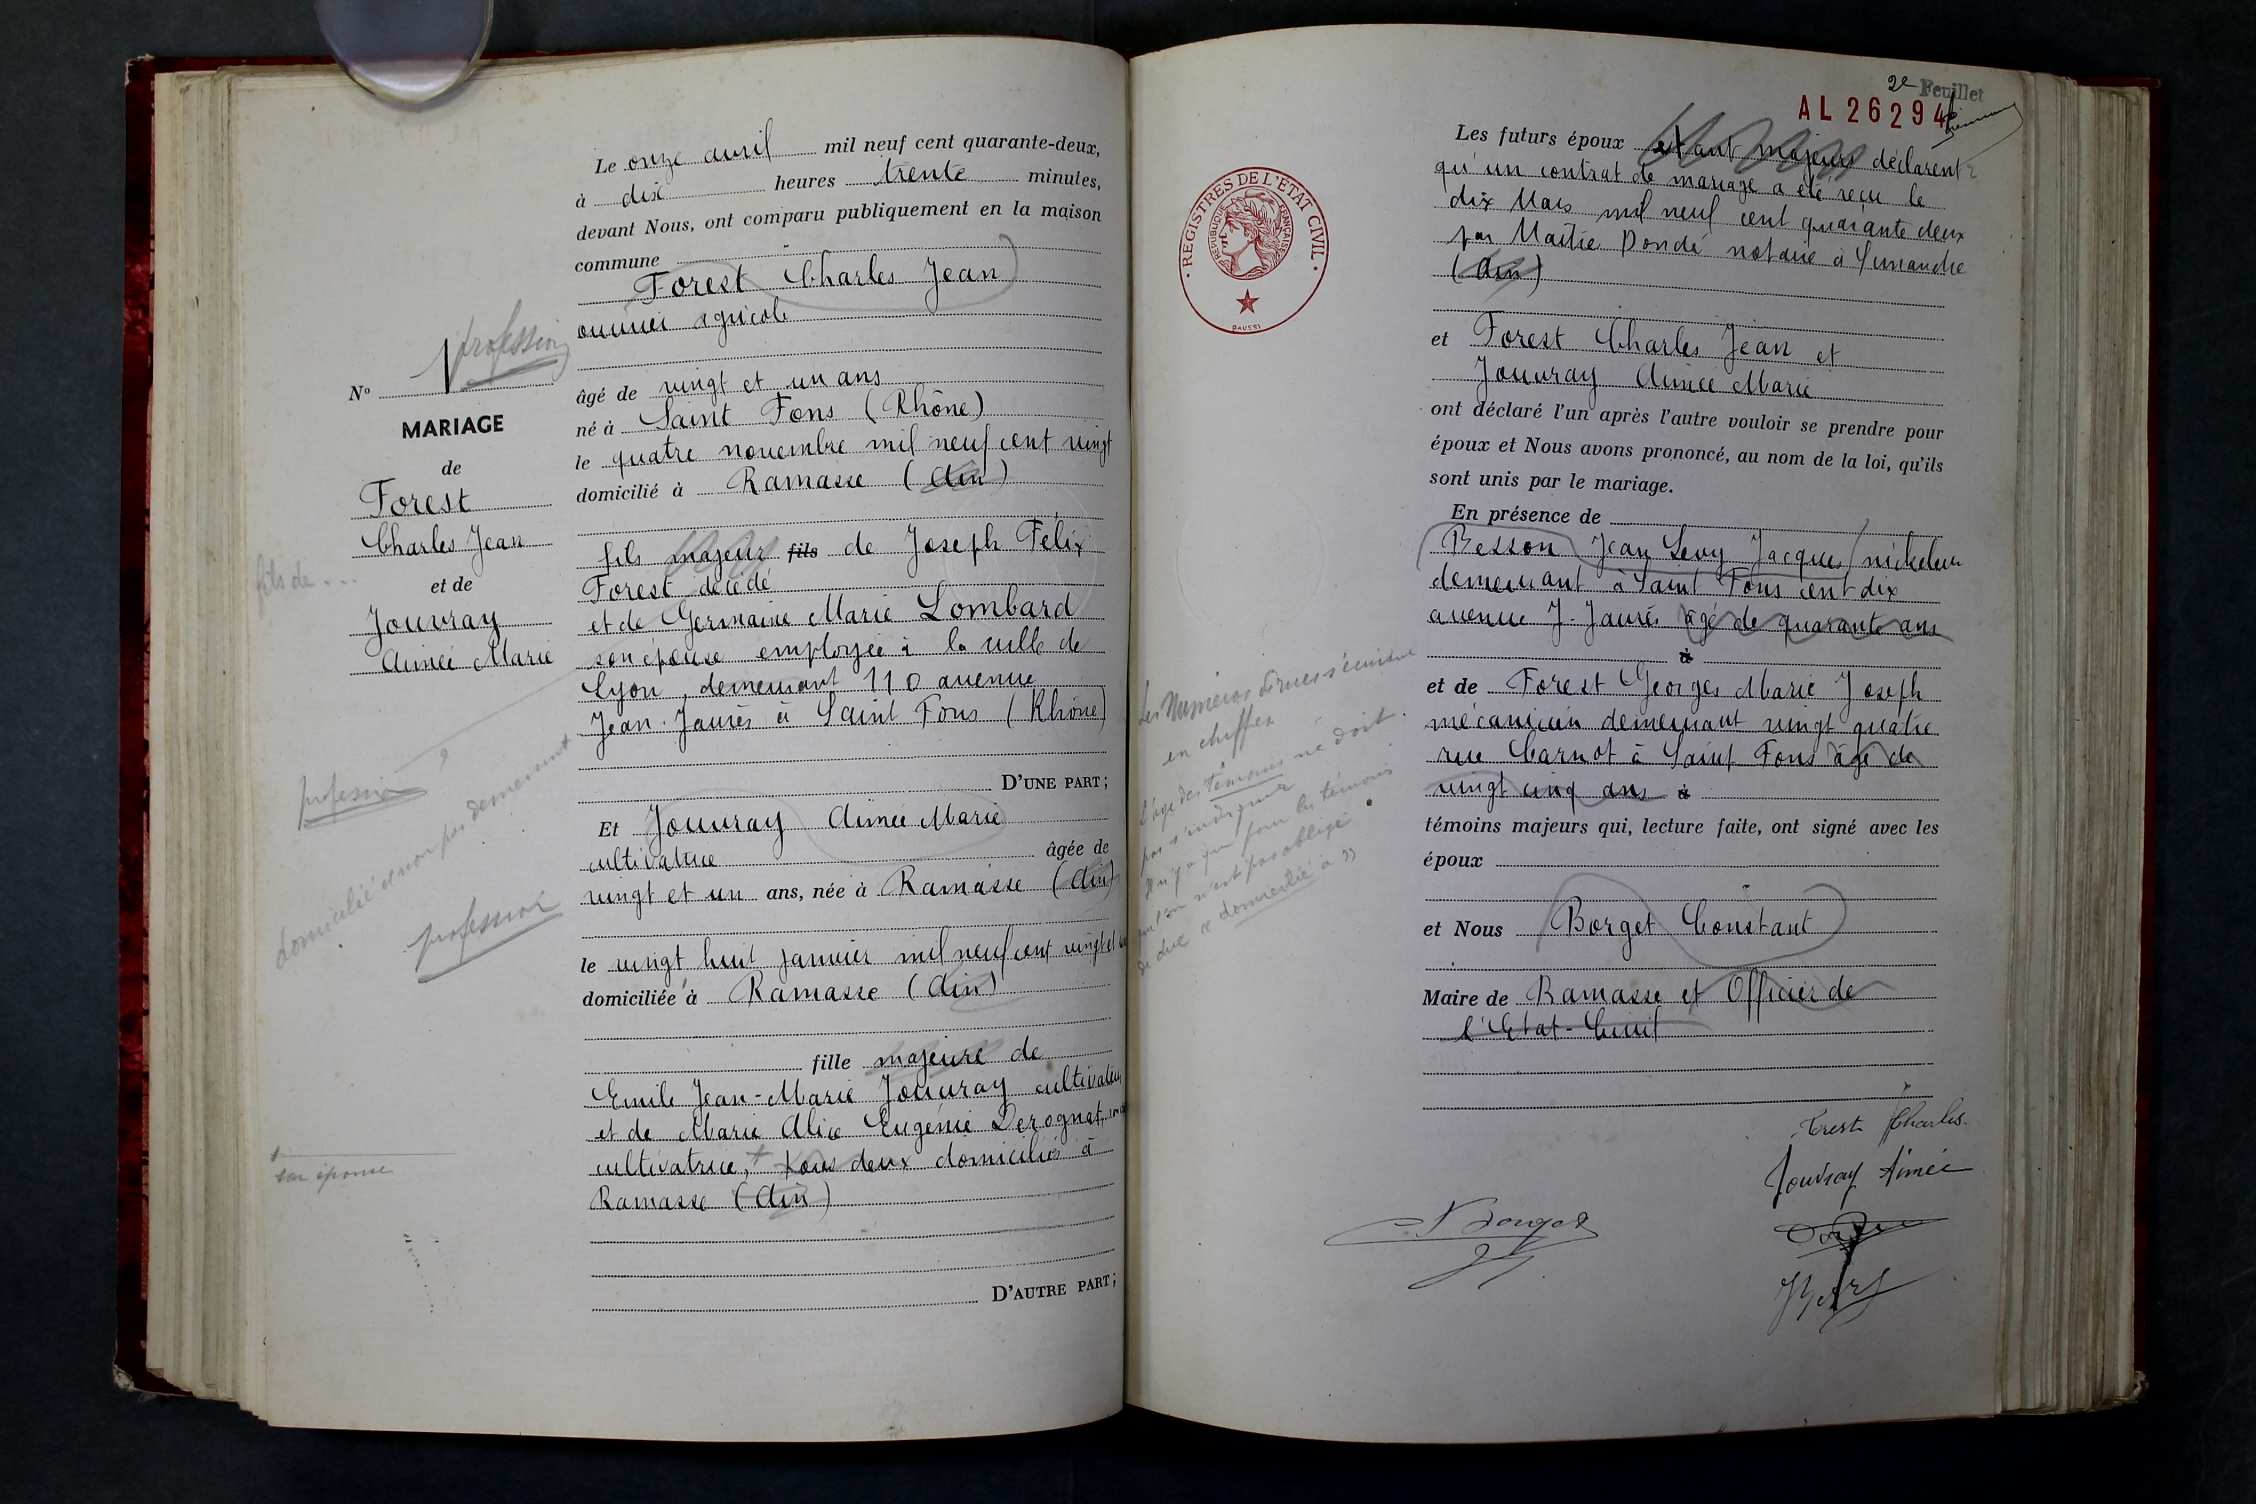 Le onze avril mil neuf cent quarante-deux,
à dix heures trente minutes,
devant Nous, ont comparu publiquement en la maison
commune
Forest Charles Jean
ouvrier agricole
profession
N°
MARIAGE
de
Forest
Charles Jean
et de
Jouvray
Aimée Marie
fils de ...
âgé de vingt et un ans
né à Saint Fons (Rhône)
le quatre novembre mil neuf cent vingt
domicilié à Ramasse (Ain)
fils majeur fils de Joseph Félix
Forest décédé
et de Germaine Marie Lombard
son épouse employée à la ville de
Lyon, demeurant 110 avenue
Jean-Jaurès à Saint Fons (Rhône)
profession ?
domicilié et non pas demeurant
D'UNE PART;
Et Jouvray Aimée Marie
cultivatrice âgée de
vingt et un ans, née à Ramasse (Ain)
profession
le vingt huit janvier mil neuf cent vingt et un
domiciliée à Ramasse (Ain)
fille majeure de
Emile Jean-Marie Jouvray cultivateur
et de Marie Alice Eugénie Derognat
cultivatrice, + tous deux domiciliés à
Ramasse (Ain)
+
son épouse
D'AUTRE PART;
2e Feuillet
AL 26294
REGISTRES DE L'ETAT CIVIL
REPUBLIQUE FRANÇAISE
DAUSSI
Les futurs époux étant majeurs déclarent
qu'un contrat de mariage a été reçu le
dix Mars mil neuf cent quarante deux
par Maître Dondé notaire à Simandre
(Ain)
et Forest Charles Jean et
Jouvray Aimée Marie
ont déclaré l'un après l'autre vouloir se prendre pour
époux et Nous avons prononcé, au nom de la loi, qu'ils
sont unis par le mariage.
En présence de
Besson Jean Levy Jacques nickeleur
demeurant à Saint Fons cent dix
avenue J. Jaurès âgé de quarante ans
à
et de Forest Georges Marie Joseph
mécanicien demeurant vingt quatre
rue Carnot à Saint Fons âgé de
vingt cinq ans à
témoins majeurs qui, lecture faite, ont signé avec les
époux
et Nous Borget Constant
Maire de Ramasse et Officier de
l'Etat-Civil
Les Numéros de rues s'écrivent
en chiffres
L'âge des témoins ne doit
pas s'indiquer
Il n'y a que pour les témoins
que l'on n'est pas obligé
de dire "domicilié à"
Forest Charles
Jouvray Aimée
C. Borget